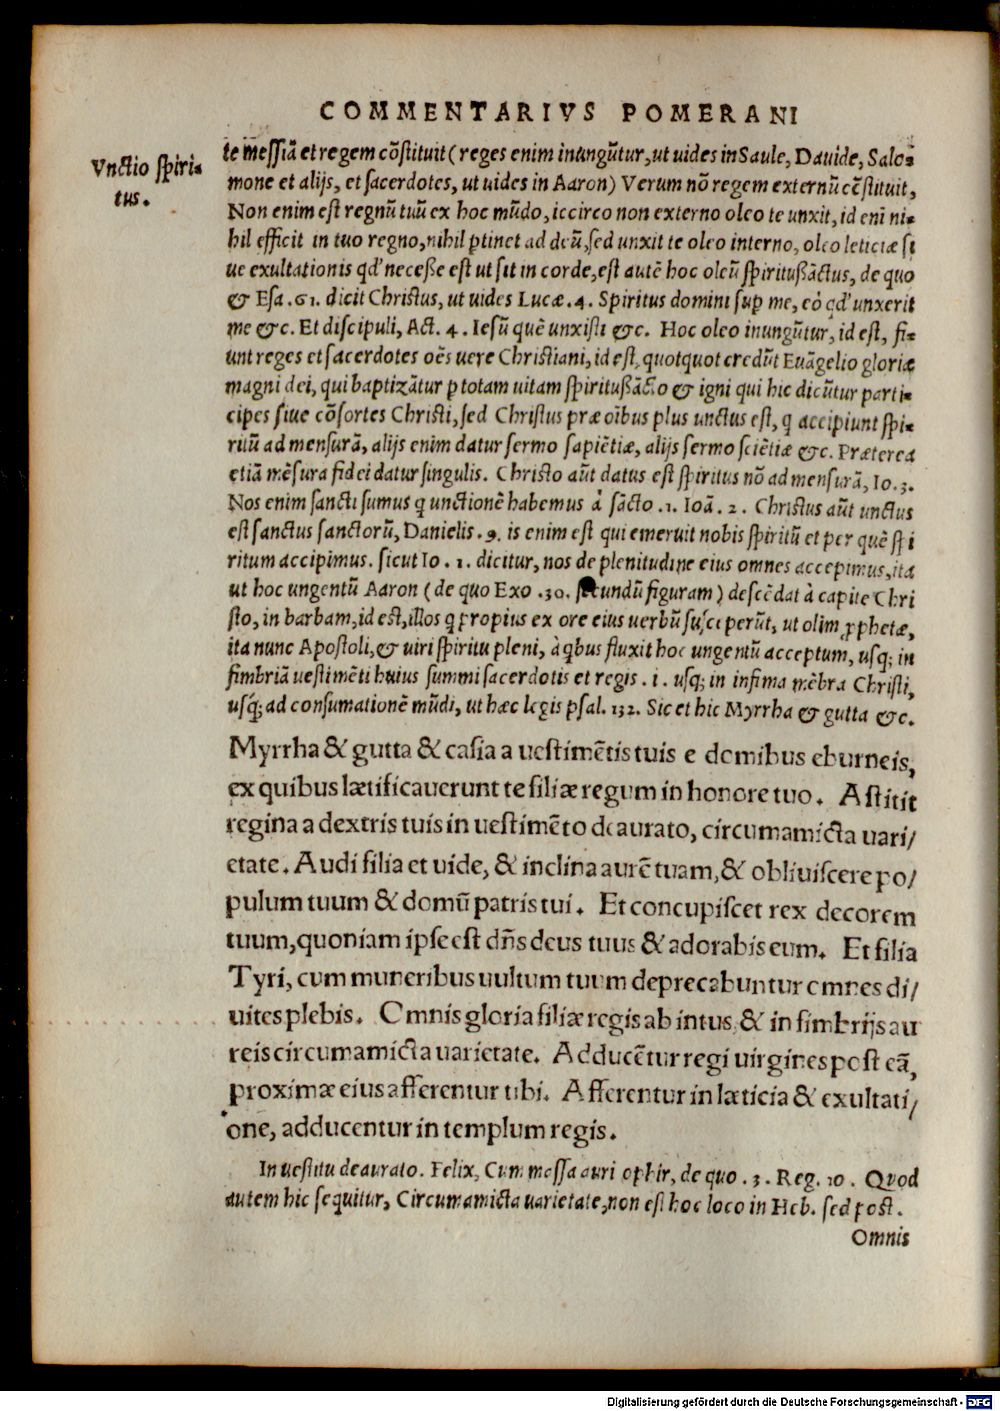 COMMENTARIVS POMERANI
Vnctio spiri-
tus.
te messiā et regem cōstituit (reges enim inungūtur, ut uides in Saule, Dauide, Salo-
mone et alijs, et sacerdotes, ut uides in Aaron) Verum nō regem externū cēstituit,
Non enim est regnū tuū ex hoc mūdo, iccirco non externo oleo te unxit, id enī ni-
hil efficit in tuo regno, nihil ꝑtinet ad deū, sed unxit te oleo interno, oleo leticiæ si
ue exultationis qd' neceße est ut sit in corde, est autē hoc oleū spiritußāctus, de quo
& Esa .61. dicit Christus, ut uides Lucæ .4. Spiritus domini sup me, eò qd' unxerit
me &c. Et discipuli, Act. 4. Iesū quē unxisti &c. Hoc oleo inungūtur, id est, fi-
unt reges et sacerdotes oēs uere Christiani, id est, quotquot credūt Euāgelio gloriæ
magni dei, qui baptizātur ꝑ totam uitam spiritußācto & igni qui hic dicūtur parti-
cipes siue cōsortes Christi, sed Christus præ oībus plus unctus est, q accipiunt spi-
ritū ad mensurā, alijs enim datur sermo sapiētiæ, alijs sermo sciētiæ &c. Præterea
etiā mēsura fidei datur singulis. Christo aūt datus est spiritus nō ad mensurā, Io. 3.
Nos enim sancti sumus q unctionē habemus à sācto .1. Ioā. 2. Christus aūt unctus
est sanctus sanctorū, Danielis .9. is enim est qui emeruit nobis spiritū et per quē spi
ritum accipimus. sicut Io. 1. dicitur, nos de plenitudine eius omnes accepimus, ita
ut hoc ungentū Aaron (de quo Exo .30. secundū figuram) descēdat à capite Chri
sto, in barbam, id est, illos q propius ex ore eius uerbū susceperūt, ut olim ꝓphetæ,
ita nunc Apostoli, & uiri spiritu pleni, à qbus fluxit hoc ungentū acceptum, usq; in
fimbriā uestimēti huius summi sacerdotis et regis .i. usq; in infima mēbra Christi,
usq; ad consumationē mūdi, ut hæc legis psal. 132. Sic et hic Myrrha & gutta &c.
Myrrha & gutta & casia a uestimētis tuis e domibus eburneis,
ex quibus lætificauerunt te filiæ regum in honore tuo. Astitit
regina a dextris tuis in uestimēto deaurato, circumamicta uari/
etate. Audi filia et uide, & inclina aurē tuam, & obliuiscere po/
pulum tuum & domū patris tui. Et concupiscet rex decorem
tuum, quoniam ipse est dn̄s deus tuus & adorabis eum. Et filia
Tyri, cum muneribus uultum tuum deprecabuntur omnes di/
uites plebis. Omnis gloria filiæ regis ab intus, & in fimbrijs au
reis circumamicta uarietate. Adducētur regi uirgines post eā,
proximæ eius afferentur tibi. Afferentur in læticia & exultati/
one, adducentur in templum regis.
In uestitu deaurato. Felix, Cum messa auri ophir, de quo .3. Reg. 10. Quod
autem hic sequitur, Circumamicta uarietate, non est hoc loco in Heb. sed post.
Omnis
Digitalisierung gefördert durch die Deutsche Forschungsgemeinschaft - DFG